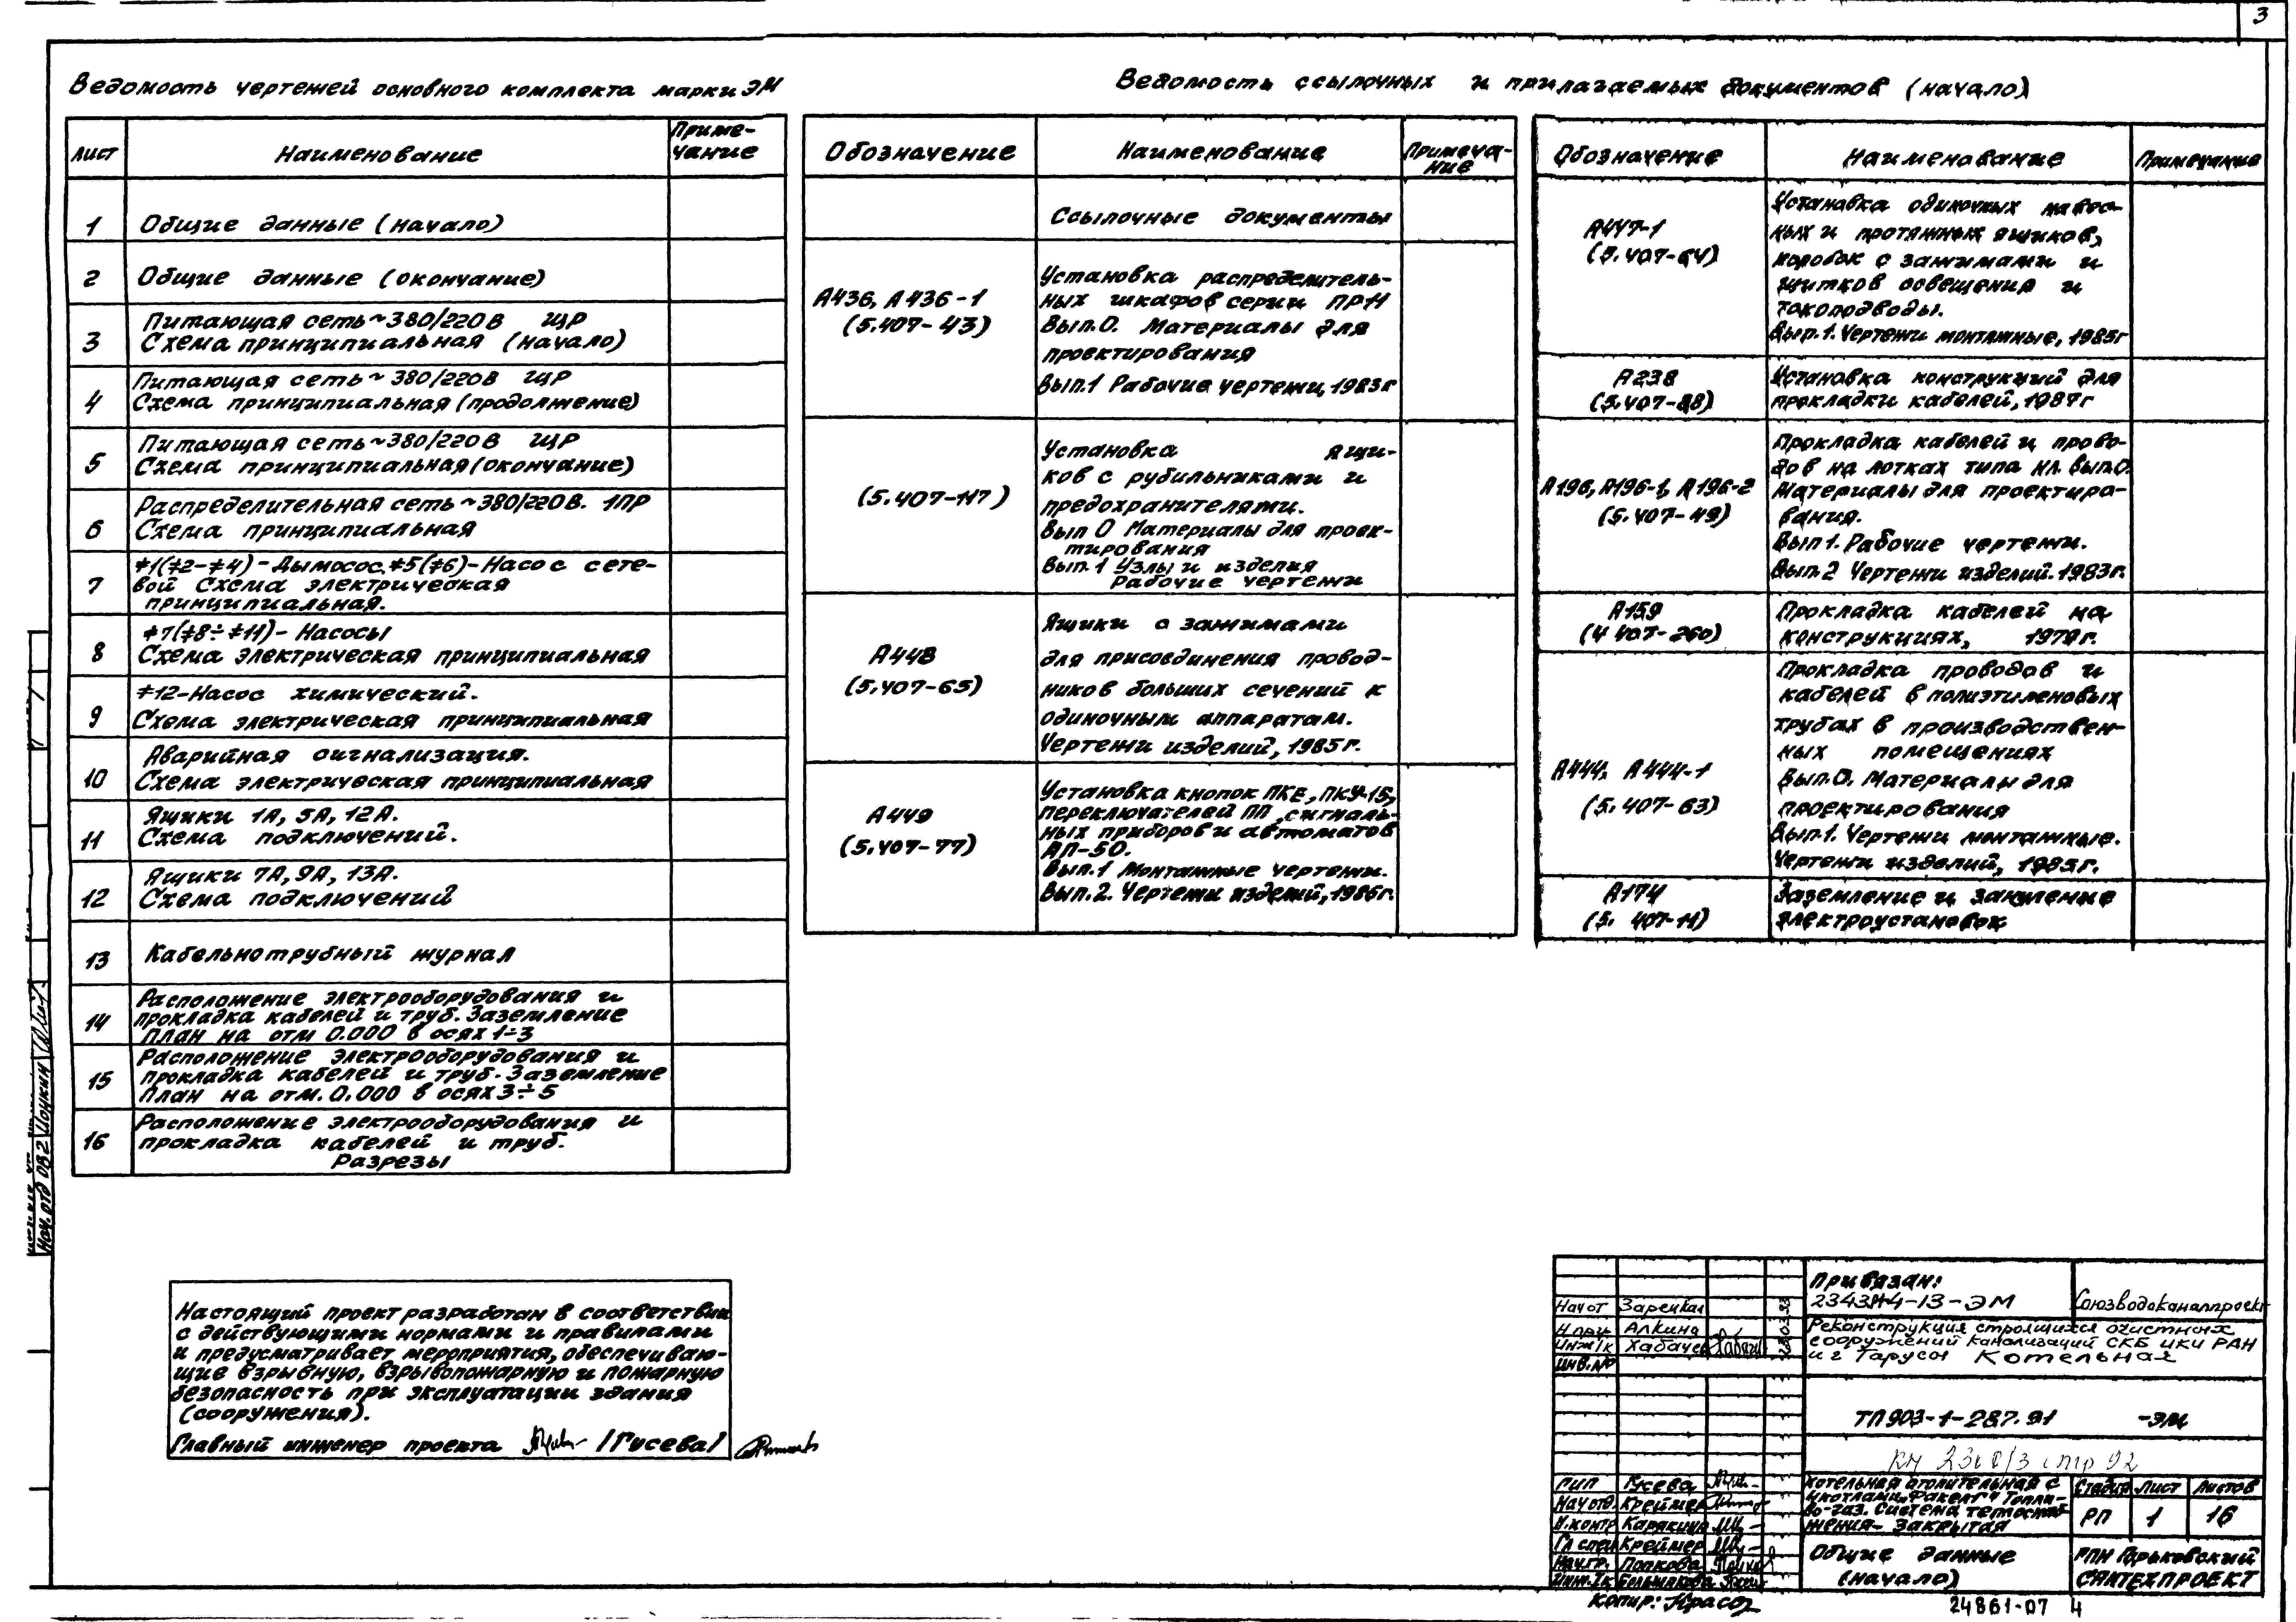 3
Ведомость чертежей основного комплекта марки ЭМ
Лист Наименование Приме-
чание
1 Общие данные (начало)
2 Общие данные (окончание)
3 Питающая сеть ~380/220В ЩР
Схема принципиальная (начало)
4 Питающая сеть ~ 380/220В ЩР
Схема принципиальная (продолжение)
5 Питающая сеть ~380/220В ЩР
Схема принципиальная (окончание)
6 Распределительная сеть ~380/220В. 1ПР
Схема принципиальная
7 ≠1(≠2-≠4) - Дымосос, ≠5(≠6) - Насос сете-
вой Схема электрическая
принципиальная.
8 ≠7(≠8÷≠11) - Насосы
Схема электрическая принципиальная
9 ≠12-Насос химический.
Схема электрическая принципиальная
10 Аварийная сигнализация.
Схема электрическая принципиальная
11 Ящики 1А, 5А, 12А.
Схема подключений.
12 Ящики 7А, 9А, 13А.
Схема подключений
13 Кабельнотрубный журнал
14 Расположение электрооборудования и
прокладка кабелей и труб. Заземление
План на отм 0.000 в осях 1÷3
15 Расположение электрооборудования и
прокладка кабелей и труб. Заземление
План на отм. 0.000 в осях 3÷5
16 Расположение электрооборудования и
прокладка кабелей и труб.
Разрезы
Ведомость ссылочных и прилагаемых документов (начало)
Обозначение Наименование Примеча-
ние
Ссылочные документы
А436, А436-1
(5.407-43)
Установка распределитель-
ных шкафов серии ПРН
Вып.0. Материалы для
проектирования
Вып.1 Рабочие чертежи, 1983г
(5.407-117)
Установка ящи-
ков с рубильниками и
предохранителями.
Вып 0 Материалы для проек-
тирования
Вып. 1 Узлы и изделия
Рабочие чертежи
А448
(5.407-65)
Ящики с зажимами
для присоединения провод-
ников больших сечений к
одиночным аппаратам.
Чертежи изделий, 1985г.
А449
(5.407-77)
Установка кнопок ПКЕ, ПКУ-15,
переключателей ПП, сигналь-
ных приборов и автоматов
АП-50.
Вып.1 Монтажные чертежи.
Вып. 2. Чертежи изделий, 1986г.
Обозначение Наименование Примечание
А447-1
(5.407-64)
Установка одиночных навес-
ных и протяжных ящиков,
коробок с зажимами и
щитков освещения и
токоподводы.
Вып.1. Чертежи монтажные, 1985г
А238
(5.407-88)
Установка конструкций для
прокладки кабелей, 1987г
А196, А196-1, А196-2
(5.407-49)
Прокладка кабелей и прово-
дов на лотках типа НЛ. Вып.0.
Материалы для проектиро-
вания.
Вып 1. Рабочие чертежи.
Вып. 2 Чертежи изделий. 1983г.
А159
(4.407-260)
Прокладка кабелей на
конструкциях, 1979г.
А444, А444-1
(5.407-63)
Прокладка проводов и
кабелей в полиэтиленовых
трубах в производствен-
ных помещениях
Вып.0. Материалы для
проектирования
Вып.1. Чертежи монтажные.
Чертежи изделий, 1985г.
А174
(5.407-11)
Заземление и зануление
электроустановок
Настоящий проект разработан в соответствии
с действующими нормами и правилами
и предусматривает мероприятия, обеспечиваю-
щие взрывную, взрывопожарную и пожарную
безопасность при эксплуатации здания
(сооружения).
Главный инженер проекта /Гусева/
Нач. отд ОВ2 Цонкин
Нач от Зарецкая
Н.пру. Алкина
Инж Iк Хабачев
Инв.№
23.03.93
Привязан:
234344-13-ЭМ
Союзводоканалпроект
Реконструкция строящихся очистных
сооружений канализации СКБ ИКИ РАН
и г Тарусы Котельная
ТП 903-1-287.91 -ЭМ
стр 92
ГИП Гусева
Нач отд. Креймер
Н.контр Карякина
Гл спец Креймер
Нач.гр. Попкова
Инж. Iк Большакова
Котельная отопительная с
4 котлами „Факел-Г" Топли-
во-газ. Система теплоснаб-
жения- закрытая
Стадия Лист Листов
РП 1 16
Общие данные
(начало)
ГПИ Горьковский
САНТЕХПРОЕКТ
Копир:
24861-07 4